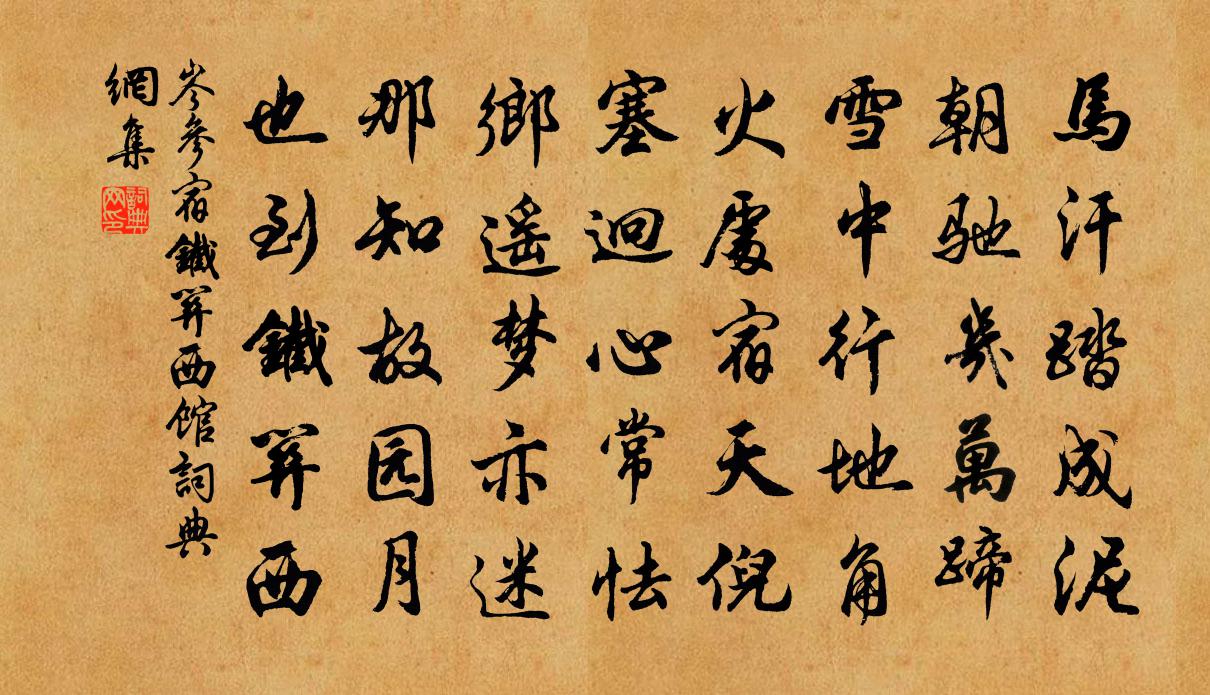 馬汗踏成泥
朝馳幾萬蹄
雪中行地角
火處宿天倪
塞迥心常怯
鄉遥梦亦迷
那知故园月
也到鐵關西
岑參宿鐵關西館詞典
網集
詞典
网印